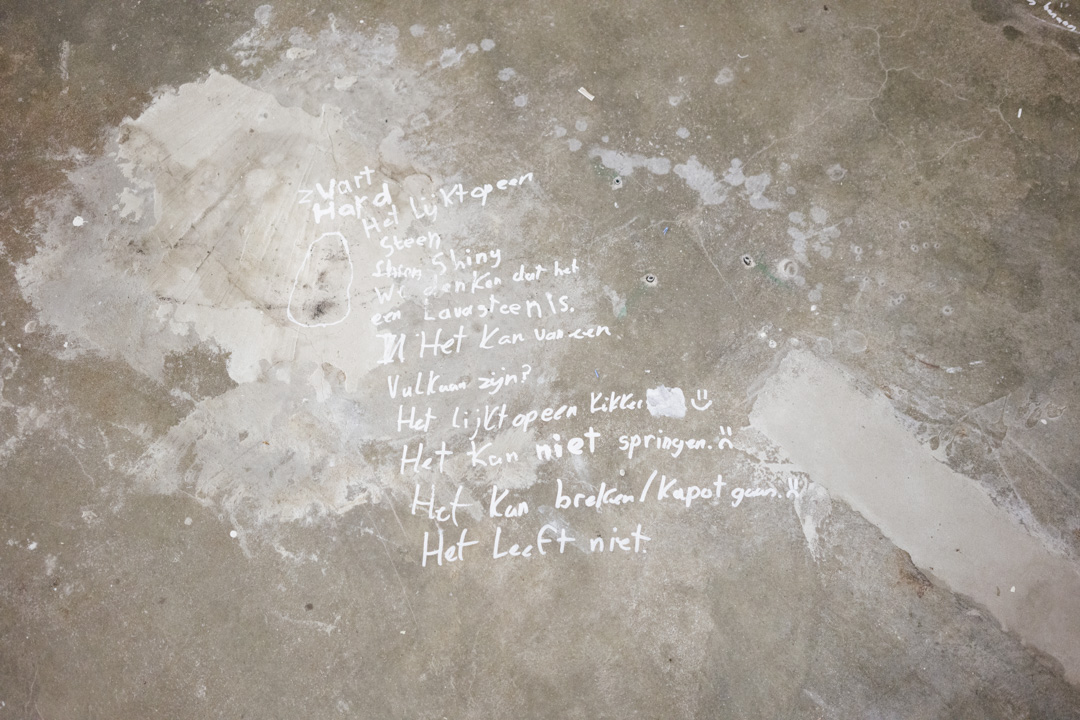 zwart
Hard
Het lijkt op een
steen
Shiny
We denken dat het
een Lavasteen is.
Het Kan van een
Vulkaan zijn?
Het lijkt op een kikker
Het Kan niet springen.
Het Kan breken/Kapot gaan.
Het Leeft niet.